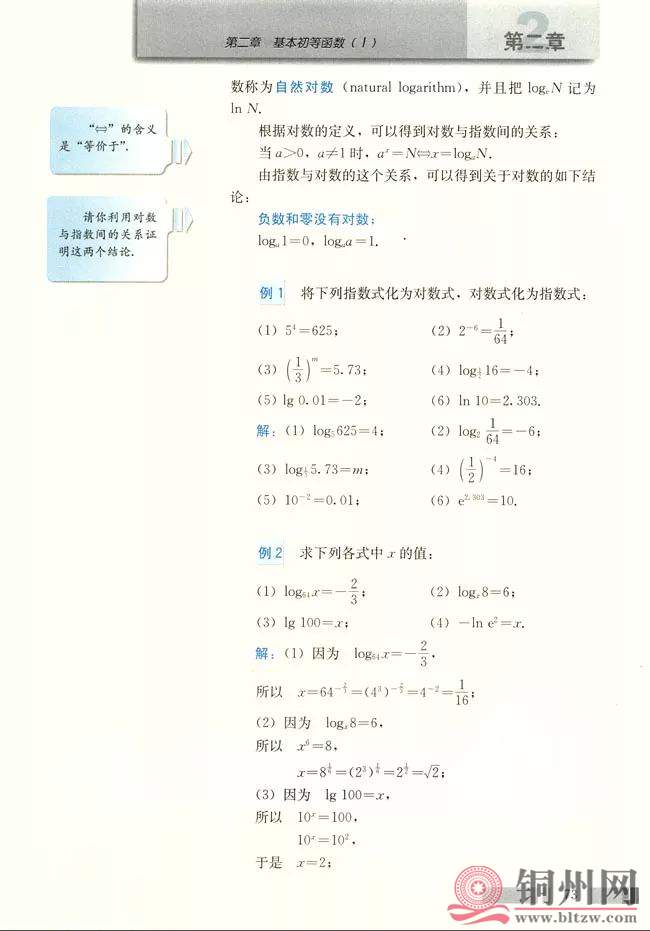 第二章 基本初等函数(Ⅰ)
第二章
数称为自然对数(natural logarithm),并且把 logₑN 记为
ln N.
“⇔”的含义
是“等价于”.
根据对数的定义,可以得到对数与指数间的关系:
当 a>0,a≠1 时,aˣ=N⇔x=logₐN.
由指数与对数的这个关系,可以得到关于对数的如下结
论:
请你利用对数
与指数间的关系证
明这两个结论.
负数和零没有对数;
logₐ1=0,logₐa=1.
例 1 将下列指数式化为对数式,对数式化为指数式:
(1) 5⁴=625; (2) 2⁻⁶=1/64;
(3) (1/3)ᵐ=5.73; (4) log_{1/2}16=-4;
(5) lg 0.01=-2; (6) ln 10=2.303.
解:(1) log₅625=4; (2) log₂ 1/64=-6;
(3) log_{1/3}5.73=m; (4) (1/2)⁻⁴=16;
(5) 10⁻²=0.01; (6) e^{2.303}=10.
例 2 求下列各式中 x 的值:
(1) log₆₄x=-2/3; (2) logₓ8=6;
(3) lg 100=x; (4) -ln e²=x.
解:(1) 因为 log₆₄x=-2/3,
所以 x=64^{-2/3}=(4³)^{-2/3}=4⁻²=1/16;
(2) 因为 logₓ8=6,
所以 x⁶=8,
x=8^{1/6}=(2³)^{1/6}=2^{1/2}=√2;
(3) 因为 lg 100=x,
所以 10ˣ=100,
10ˣ=10²,
于是 x=2;
73
铜州网
www.bltzw.com